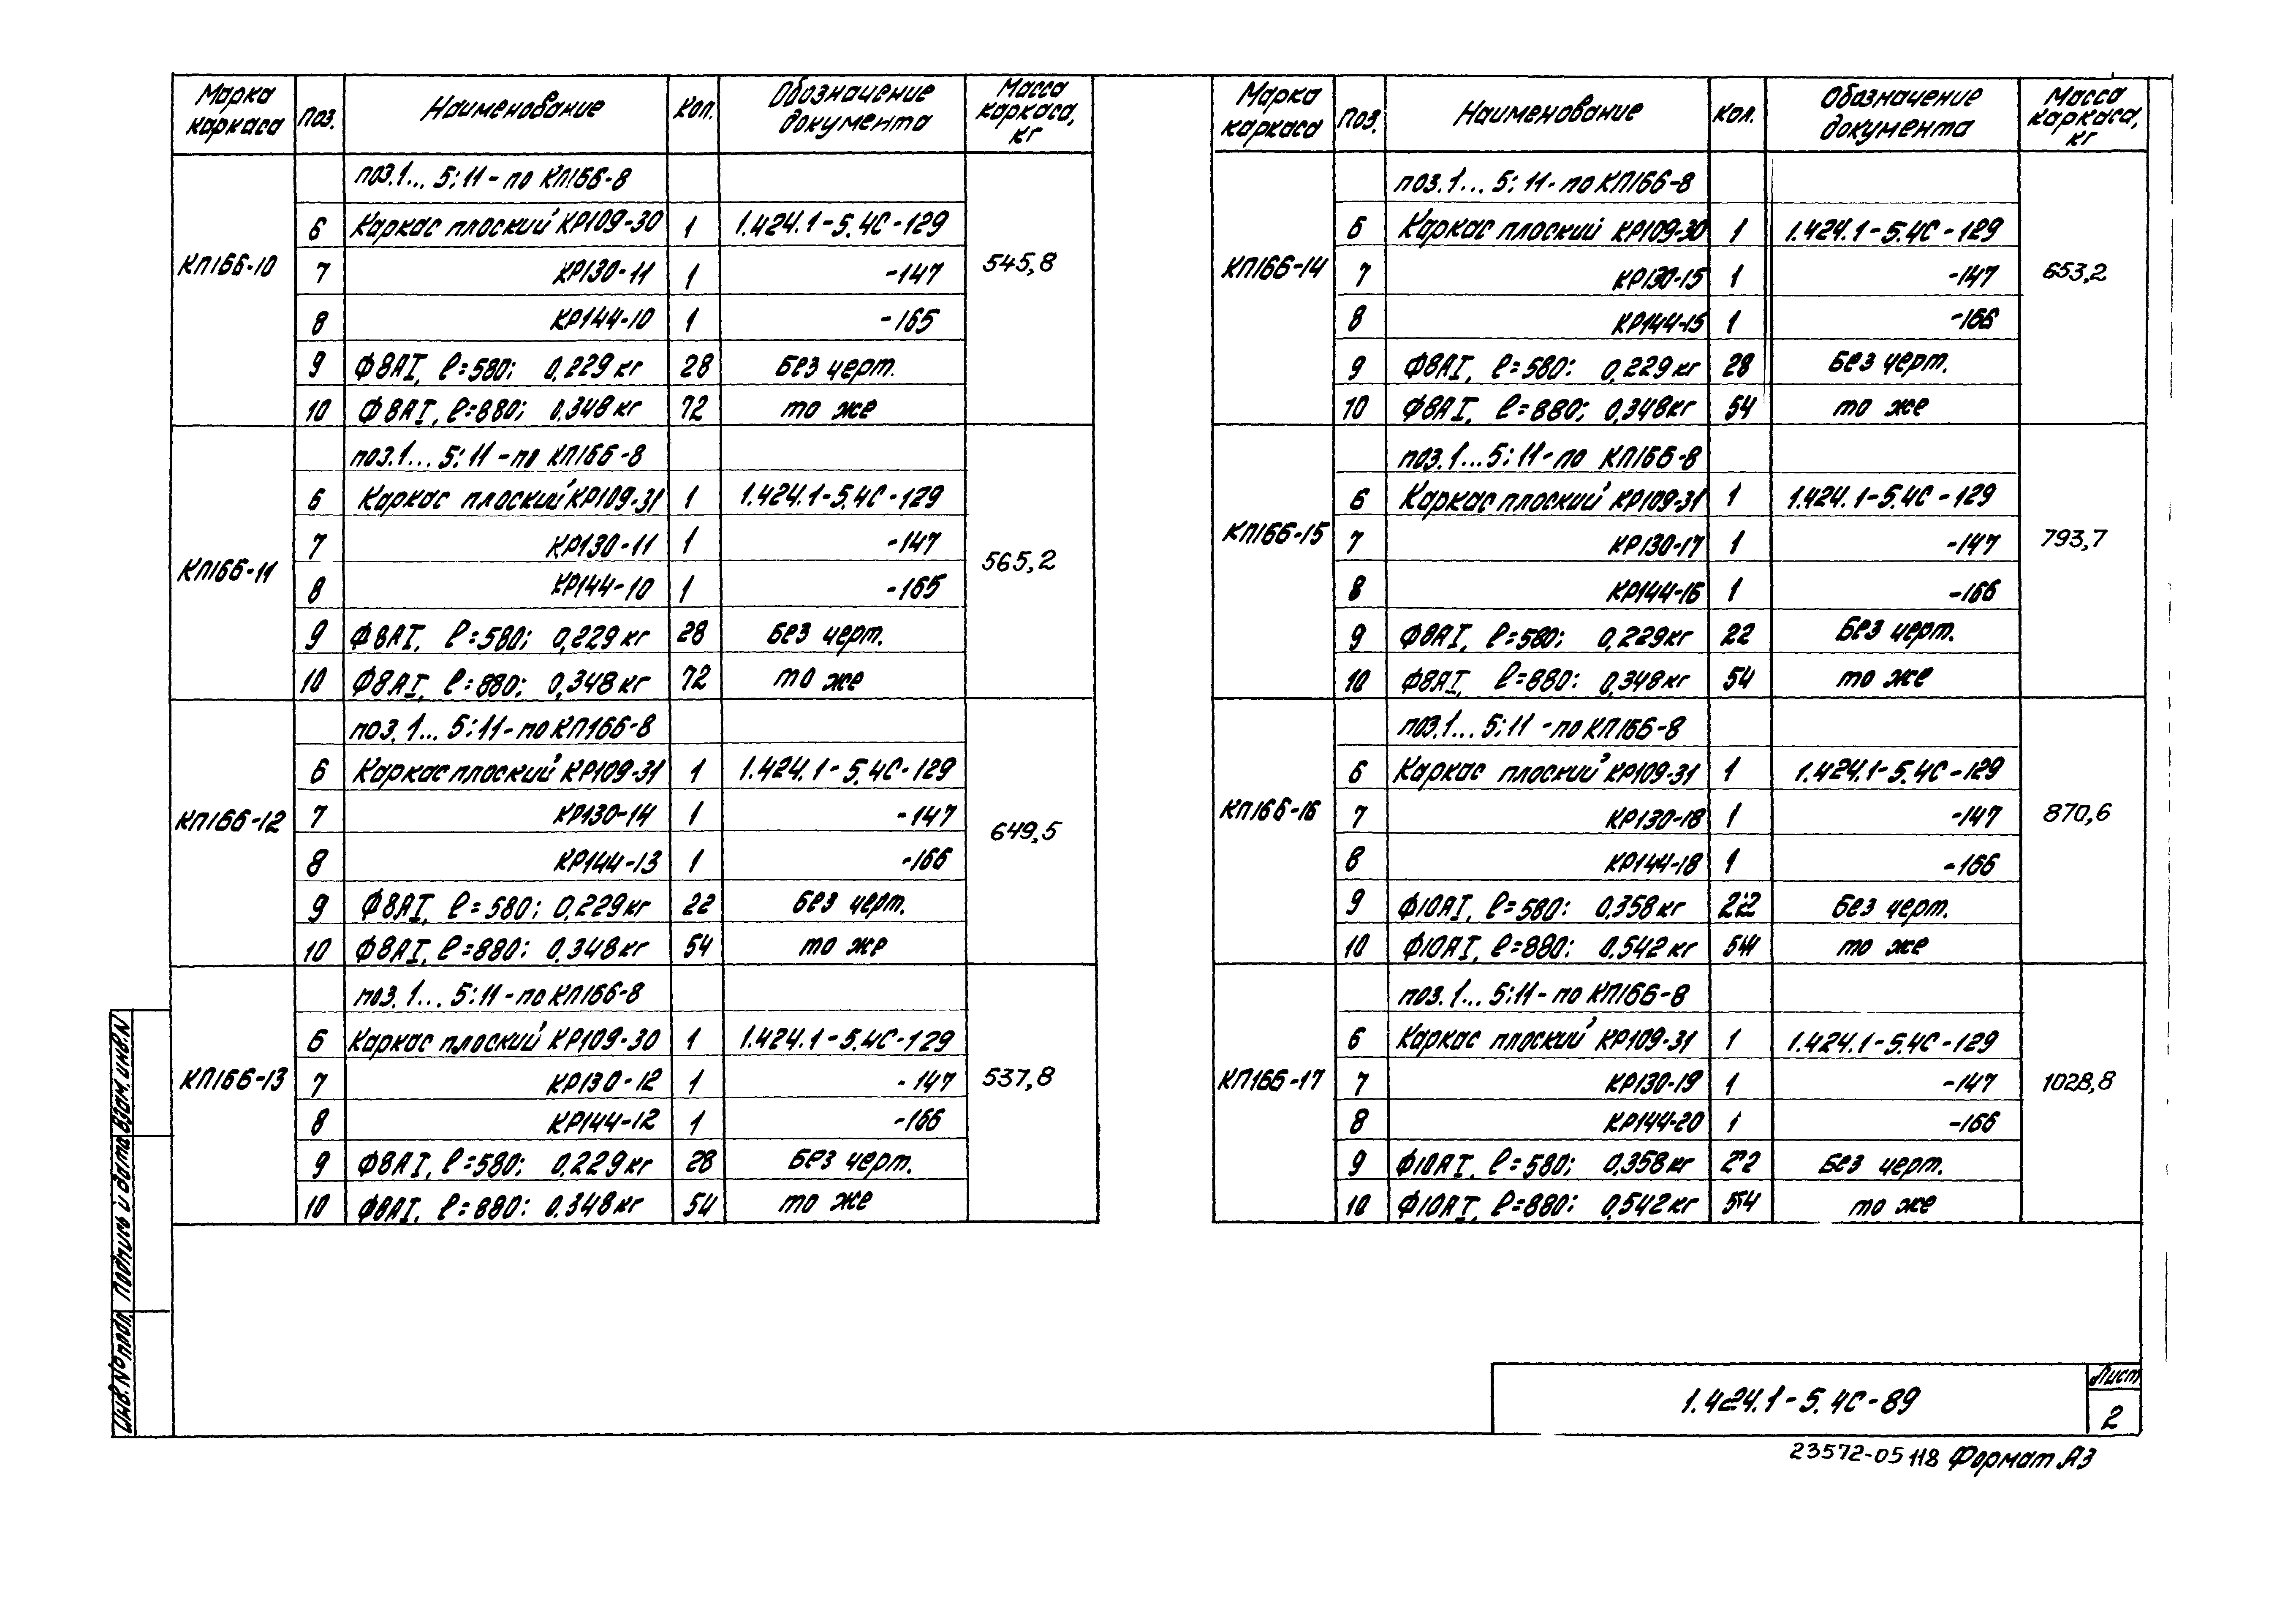 Марка каркаса Поз. Наименование Кол. Обозначение документа Масса каркаса, кг
поз.1... 5; 11 - по КП166-8
6 Каркас плоский КР109-30 1 1.424.1-5.4С-129
КП166-10 7 КР130-11 1 -147 545,8
8 КР144-10 1 -165
9 Ф8АI, ℓ=580; 0,229 кг 28 Без черт.
10 Ф8АI, ℓ=880; 0.348 кг 72 то же
поз.1... 5; 11 - по КП166-8
6 Каркас плоский КР109-31 1 1.424.1-5.4С-129
КП166-11 7 КР130-11 1 -147 565,2
8 КР144-10 1 -165
9 Ф8АI, ℓ=580; 0,229 кг 28 Без черт.
10 Ф8АI, ℓ=880; 0,348 кг 72 то же
поз. 1... 5; 11 - по КП166-8
6 Каркас плоский КР109-31 1 1.424.1-5.4С-129
КП166-12 7 КР130-14 1 -147 649,5
8 КР144-13 1 -166
9 Ф8АI, ℓ=580; 0,229 кг 22 Без черт.
10 Ф8АI, ℓ=880; 0,348 кг 54 то же
поз. 1... 5; 11 - по КП166-8
6 Каркас плоский КР109-30 1 1.424.1-5.4С-129
КП166-13 7 КР130-12 1 -147 537,8
8 КР144-12 1 -166
9 Ф8АI, ℓ=580; 0,229 кг 28 Без черт.
10 Ф8АI, ℓ=880; 0.348 кг 54 то же
Марка каркаса Поз. Наименование Кол. Обозначение документа Масса каркаса, кг
поз.1... 5; 11 - по КП166-8
6 Каркас плоский КР109-30 1 1.424.1-5.4С-129
КП166-14 7 КР130-15 1 -147 653,2
8 КР144-15 1 -166
9 Ф8АI, ℓ=580; 0,229 кг 28 Без черт.
10 Ф8АI, ℓ=880; 0,348 кг 54 то же
поз.1... 5; 11 - по КП166-8
6 Каркас плоский КР109-31 1 1.424.1-5.4С-129
КП166-15 7 КР130-17 1 -147 793,7
8 КР144-16 1 -166
9 Ф8АI, ℓ=580; 0,229 кг 22 Без черт.
10 Ф8АI, ℓ=880; 0,348 кг 54 то же
поз.1... 5; 11 - по КП166-8
6 Каркас плоский КР109-31 1 1.424.1-5.4С-129
КП166-16 7 КР130-18 1 -147 870,6
8 КР144-18 1 -166
9 Ф10АI, ℓ=580; 0.358 кг 22 Без черт.
10 Ф10АI, ℓ=880; 0.542 кг 54 то же
поз. 1... 5; 11 - по КП166-8
6 Каркас плоский КР109-31 1 1.424.1-5.4С-129
КП166-17 7 КР130-19 1 -147 1028,8
8 КР144-20 1 -166
9 Ф10АI, ℓ=580; 0,358 кг 22 Без черт.
10 Ф10АI, ℓ=880; 0,542 кг 54 то же
Инв. № подл. Подпись и дата Взам. инв. N
1.424.1-5.4С-89
Лист
2
23572-05 118 Формат А3